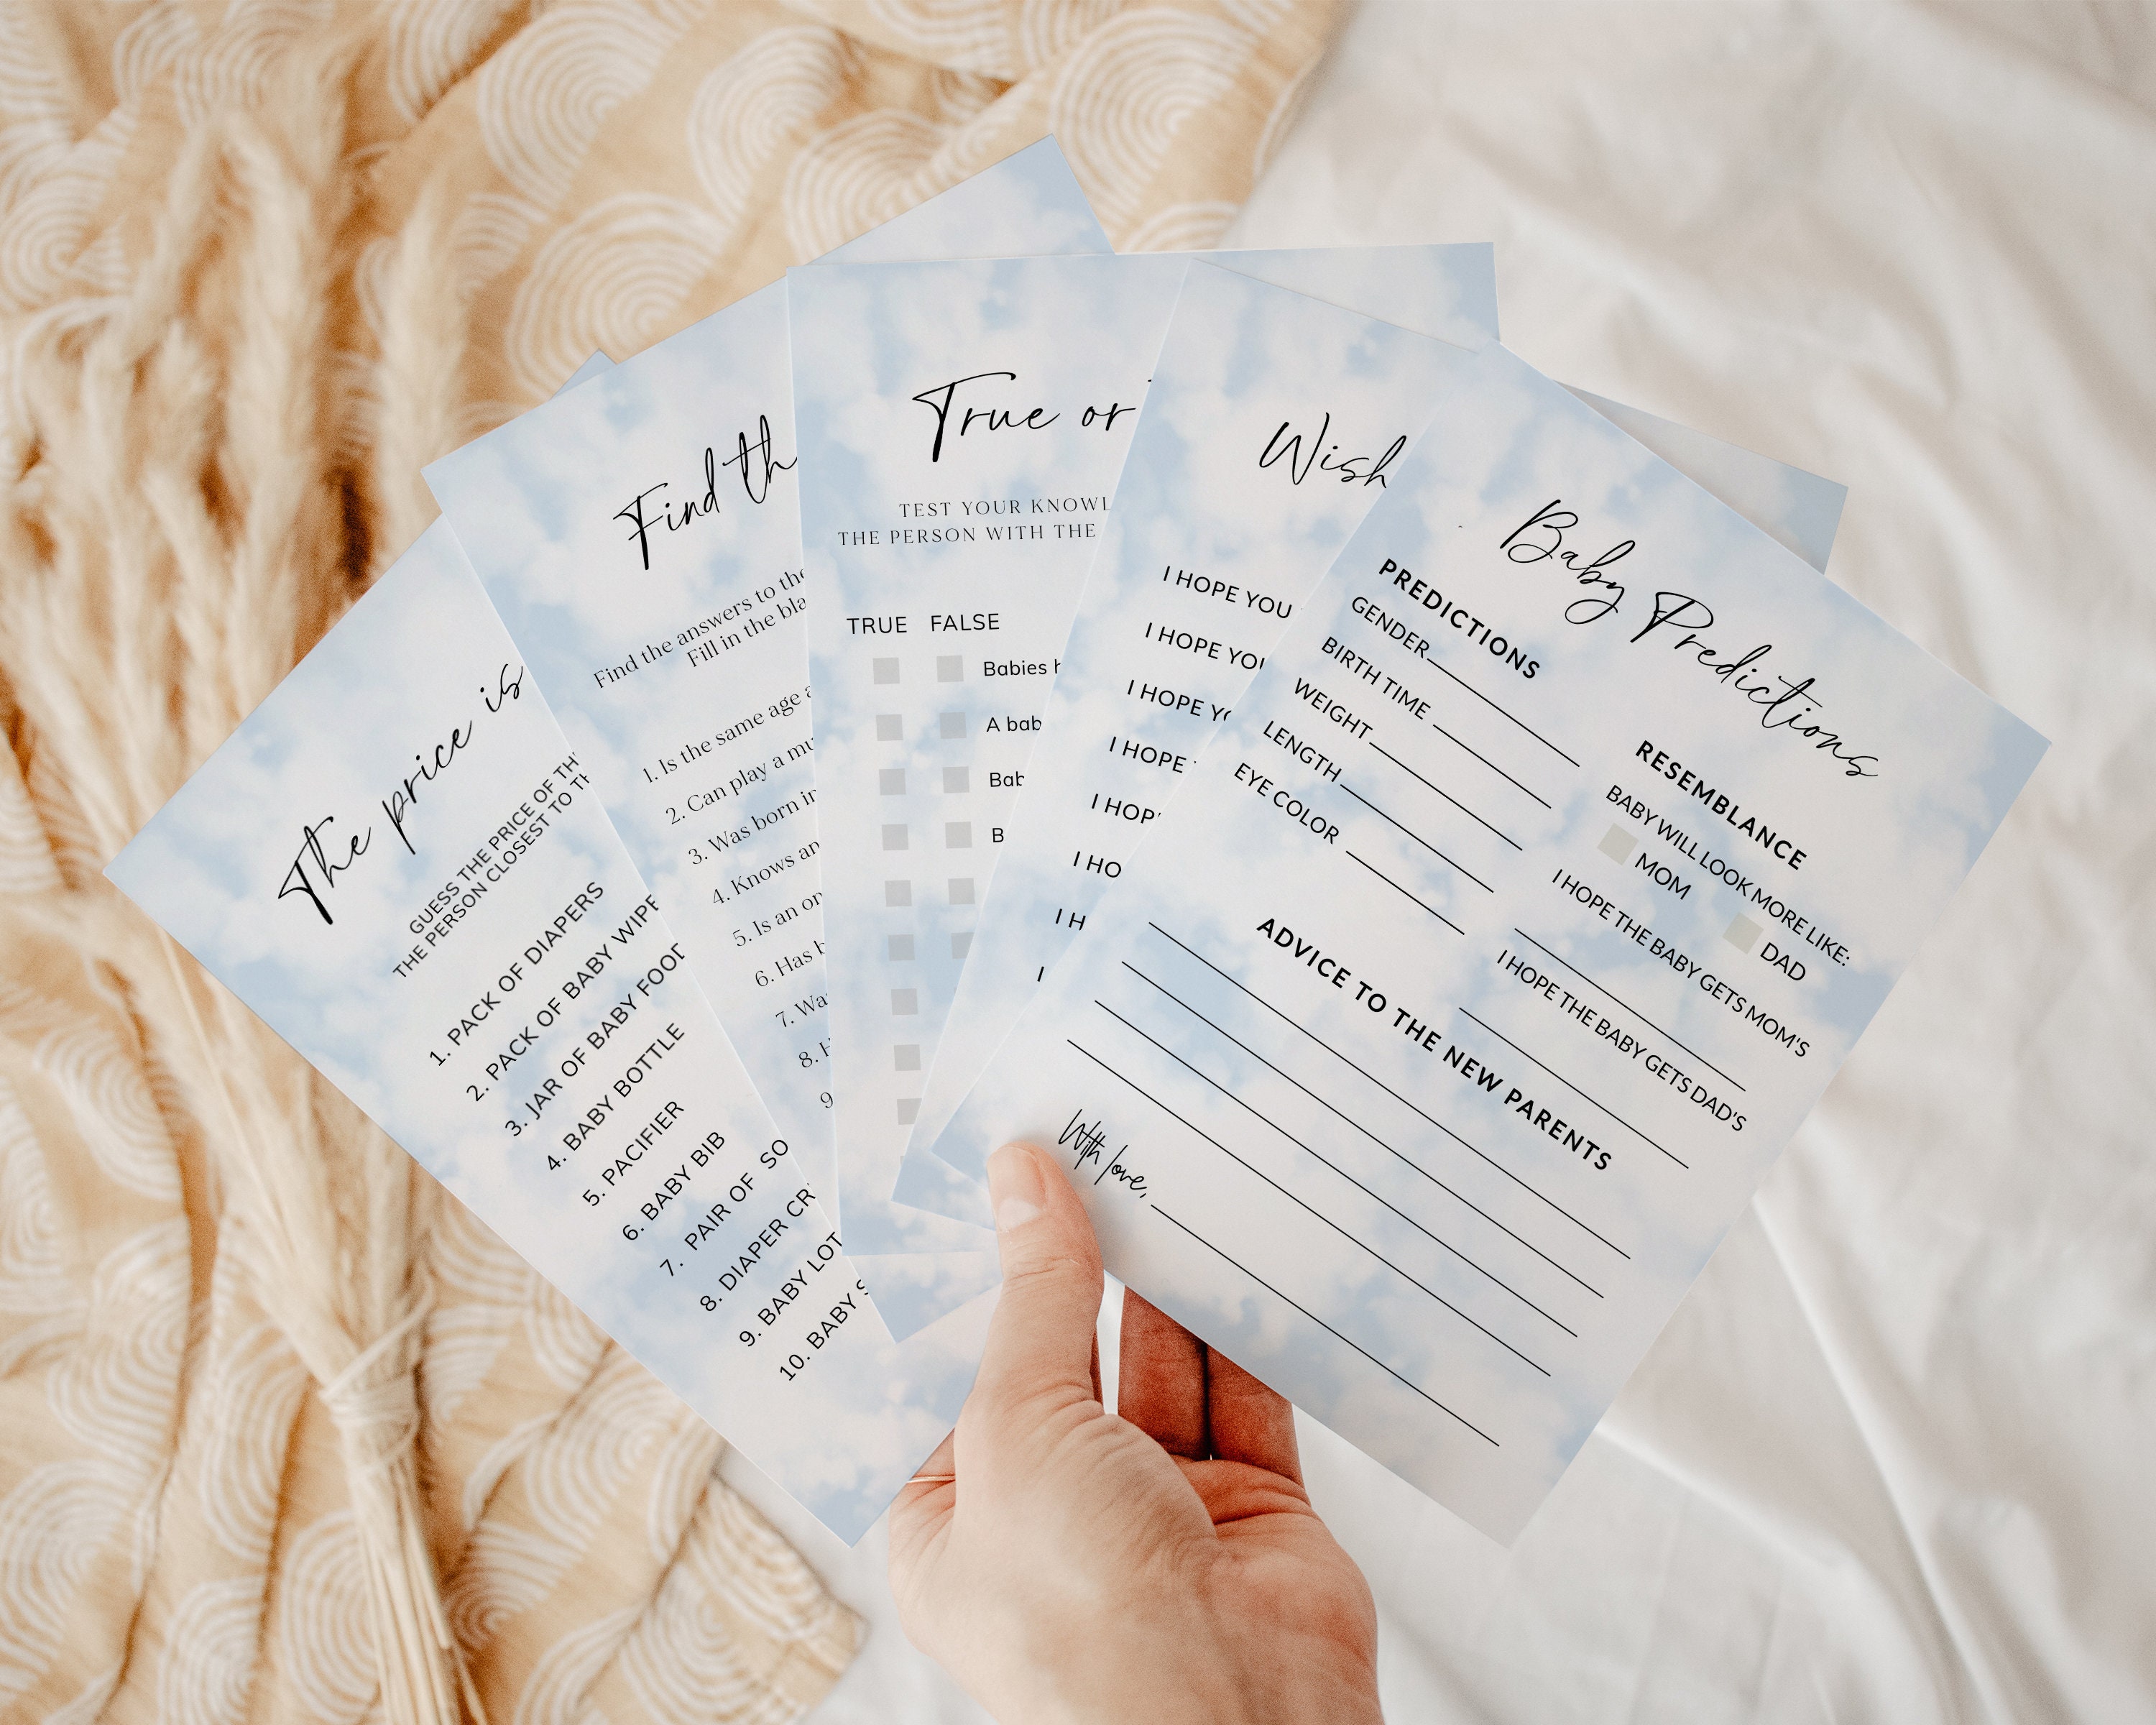 The price is
GUESS THE PRICE OF TH
THE PERSON CLOSEST TO TH
1. PACK OF DIAPERS
2. PACK OF BABY WIPE
3. JAR OF BABY FOOD
4. BABY BOTTLE
5. PACIFIER
6. BABY BIB
7. PAIR OF SO
8. DIAPER CR
9. BABY LOT
10. BABY S
Find th
Find the answers to the
Fill in the bla
1. Is the same age a
2. Can play a mu
3. Was born in
4. Knows an
5. Is an on
6. Has b
7. Wa
8. H
9
True or
TEST YOUR KNOWL
THE PERSON WITH THE
TRUE FALSE
Babies h
A bab
Bab
B
Wish
I HOPE YOU
I HOPE YOU
I HOPE YO
I HOPE
I HOP
I HO
I H
I
Baby Predictions
PREDICTIONS
GENDER
BIRTH TIME
WEIGHT
LENGTH
EYE COLOR
RESEMBLANCE
BABY WILL LOOK MORE LIKE:
MOM DAD
I HOPE THE BABY GETS MOM'S
I HOPE THE BABY GETS DAD'S
ADVICE TO THE NEW PARENTS
With love,